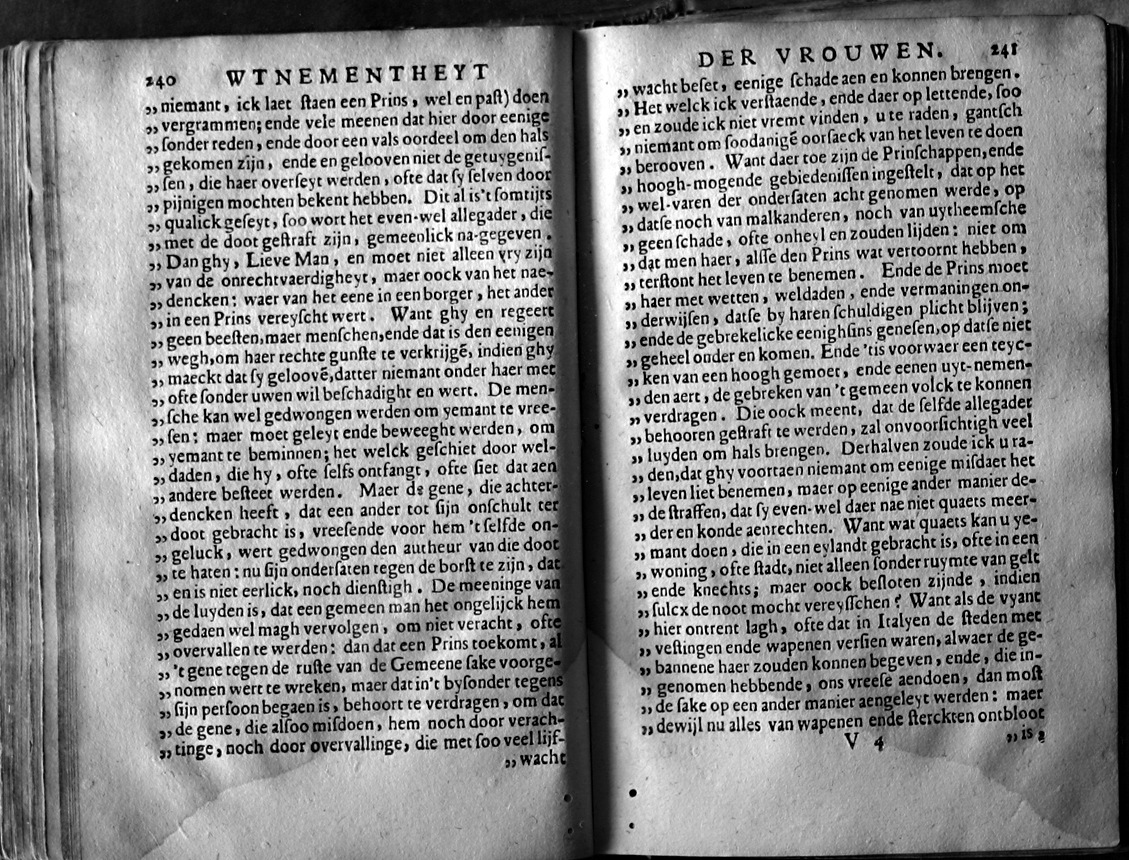 240 WTNEMENTHEYT
„ niemant, ick laet ſtaen een Prins, wel en paſt) doen
„ vergrammen; ende vele meenen dat hier door eenige
„ ſonder reden, ende door een vals oordeel om den hals
„ gekomen zijn, ende en gelooven niet de getuygeniſ-
„ ſen, die haer overſeyt werden, ofte dat ſy ſelven door
„ pijnigen mochten bekent hebben. Dit al is't ſomtijts
„ qualick geſeyt, ſoo wort het even-wel allegader, die
„ met de doot geſtraft zijn, gemeenlick na-gegeven.
„ Dan ghy, Lieve Man, en moet niet alleen vry zijn
„ van de onrechtvaerdigheyt, maer oock van het nae-
„ dencken: waer van het eene in een borger, het ander
„ in een Prins vereyſcht wert. Want ghy en regeert
„ geen beeſten, maer menſchen, ende dat is den eenigen
„ wegh, om haer rechte gunſte te verkrijgē, indien ghy
„ maeckt dat ſy geloovē, datter niemant onder haer met
„ ofte ſonder uwen wil beſchadight en wert. De men-
„ ſche kan wel gedwongen werden om yemant te vree-
„ ſen: maer moet geleyt ende beweeght werden, om
„ yemant te beminnen; het welck geſchiet door wel-
„ daden, die hy, ofte ſelfs ontfangt, ofte ſiet dat aen
„ andere beſteet werden. Maer de gene, die achter-
„ dencken heeft, dat een ander tot ſijn onſchult ter
„ doot gebracht is, vreeſende voor hem 't ſelfde on-
„ geluck, wert gedwongen den autheur van die doot
„ te haten: nu ſijn onderſaten tegen de borſt te zijn, dat
„ en is niet eerlick, noch dienſtigh. De meeninge van
„ de luyden is, dat een gemeen man het ongelijck hem
„ gedaen wel magh vervolgen, om niet veracht, ofte
„ overvallen te werden: dan dat een Prins toekomt, al
„ 't gene tegen de ruſte van de Gemeene ſake voorge-
„ nomen wert te wreken, maer dat in't byſonder tegens
„ ſijn perſoon begaen is, behoort te verdragen, om dat
„ de gene, die alſoo miſdoen, hem noch door verach-
„ tinge, noch door overvallinge, die met ſoo veel lijf-
„ wacht
DER VROUWEN. 241
„ wacht beſet, eenige ſchade aen en konnen brengen.
„ Het welck ick verſtaende, ende daer op lettende, ſoo
„ en zoude ick niet vremt vinden, u te raden, gantſch
„ niemant om ſoodanigē oorſaeck van het leven te doen
„ berooven. Want daer toe zijn de Prinſchappen, ende
„ hoogh-mogende gebiedeniſſen ingeſtelt, dat op het
„ wel-varen der onderſaten acht genomen werde, op
„ datſe noch van malkanderen, noch van uytheemſche
„ geen ſchade, ofte onheyl en zouden lijden: niet om
„ dat men haer, alſſe den Prins wat vertoornt hebben,
„ terſtont het leven te benemen. Ende de Prins moet
„ haer met wetten, weldaden, ende vermaningen on-
„ derwijſen, datſe by haren ſchuldigen plicht blijven;
„ ende de gebrekelicke eenighſins geneſen, op datſe niet
„ geheel onder en komen. Ende 'tis voorwaer een teyc-
„ ken van een hoogh gemoet, ende eenen uyt-nemen-
„ den aert, de gebreken van 't gemeen volck te konnen
„ verdragen. Die oock meent, dat de ſelfde allegader
„ behooren geſtraft te werden, zal onvoorſichtigh veel
„ luyden om hals brengen. Derhalven zoude ick u ra-
„ den, dat ghy voortaen niemant om eenige miſdaet het
„ leven liet benemen, maer op eenige ander manier de-
„ de ſtraffen, dat ſy even-wel daer nae niet quaets meer-
„ der en konde aenrechten. Want wat quaets kan u ye-
„ mant doen, die in een eylandt gebracht is, ofte in een
„ woning, ofte ſtadt, niet alleen ſonder ruymte van gelt
„ ende knechts; maer oock beſloten zijnde, indien
„ ſulcx de noot mocht vereyſſchen? Want als de vyant
„ hier ontrent lagh, ofte dat in Italyen de ſteden met
„ veſtingen ende wapenen verſien waren, alwaer de ge-
„ bannene haer zouden konnen begeven, ende, die in-
„ genomen hebbende, ons vreeſe aendoen, dan moſt
„ de ſake op een ander manier aengeleyt werden: maer
„ dewijl nu alles van wapenen ende ſterckten ontbloot
V 4 „ is,